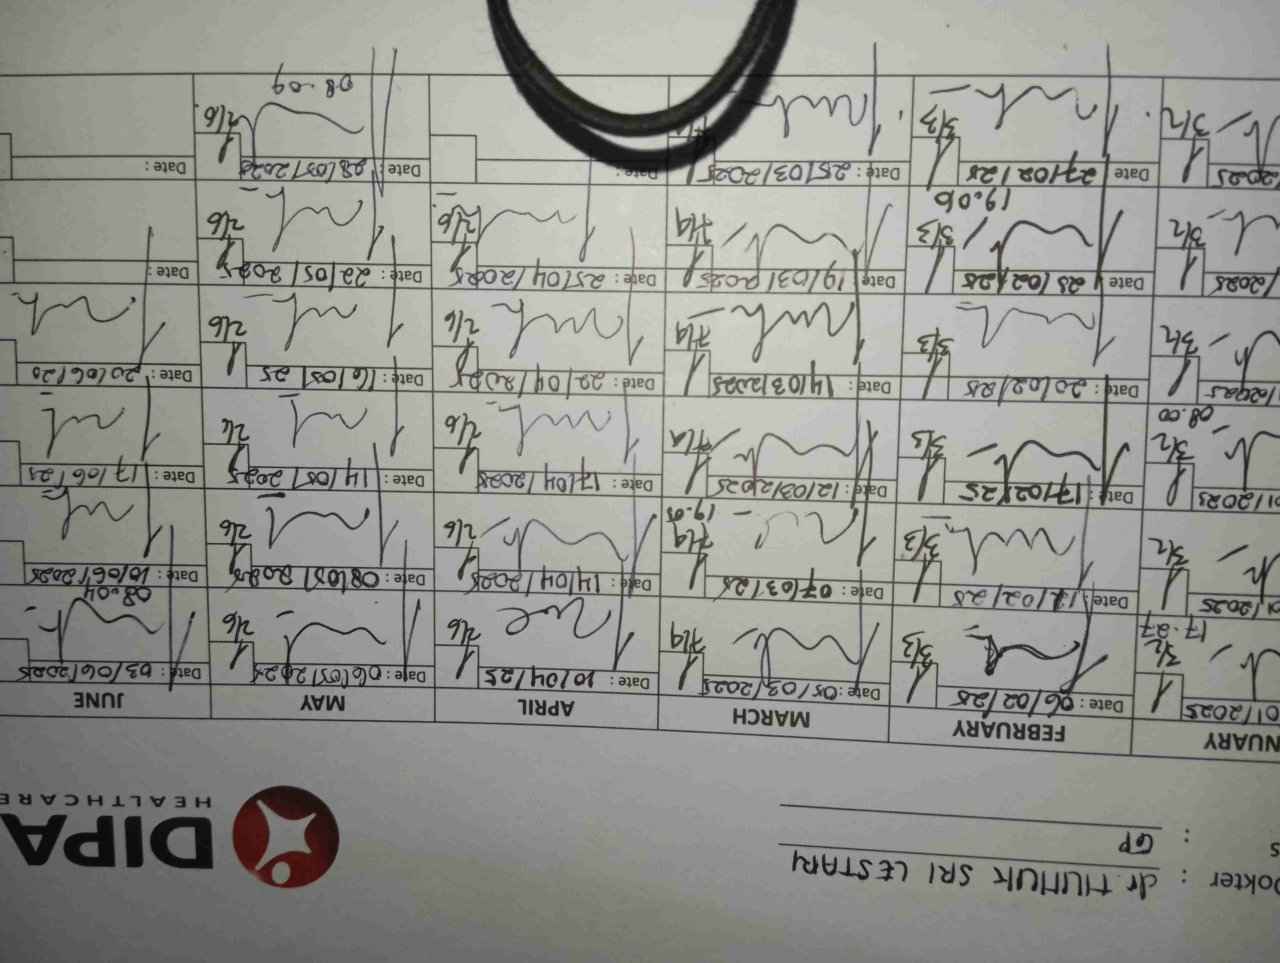 Dokter : dr. TITIMUK SRI LESTARI
s : GP
DIPA
HEALTHCARE
NUARY FEBRUARY MARCH APRIL MAY JUNE
01/2025 Date : 06/02/25 Date : 05/03/2025 Date : 10/04/25 Date : 06/05/2025 Date : 03/06/2025
3/2 3/3 7/4 2/6 2/6
17.27 08.04
01/2025 Date : 12/02/25 Date : 07/03/25 Date : 14/04/2025 Date : 08/05/2025 Date : 10/06/2025
3/2 3/3 7/4 2/6 2/6
19.05
01/2025 Date : 17/02/25 Date : 12/03/2025 Date : 17/04/2025 Date : 14/05/2025 Date : 17/06/25
3/2 3/3 7/4 2/6 2/6
08.00
/2025 Date : 20/02/25 Date : 14/03/2025 Date : 22/04/2025 Date : 16/05/25 Date : 20/06/20
3/2 3/3 7/4 2/6 2/6
/2025 Date : 25/02/25 Date : 19/03/2025 Date : 25/04/2025 Date : 22/05/2025 Date :
3/2 3/3 7/4 2/6 2/6
19.06
2025 Date : 27/02/25 Date : 25/03/2025 Date : Date : 28/05/2025 Date :
3/2 3/3 2/6
08.09